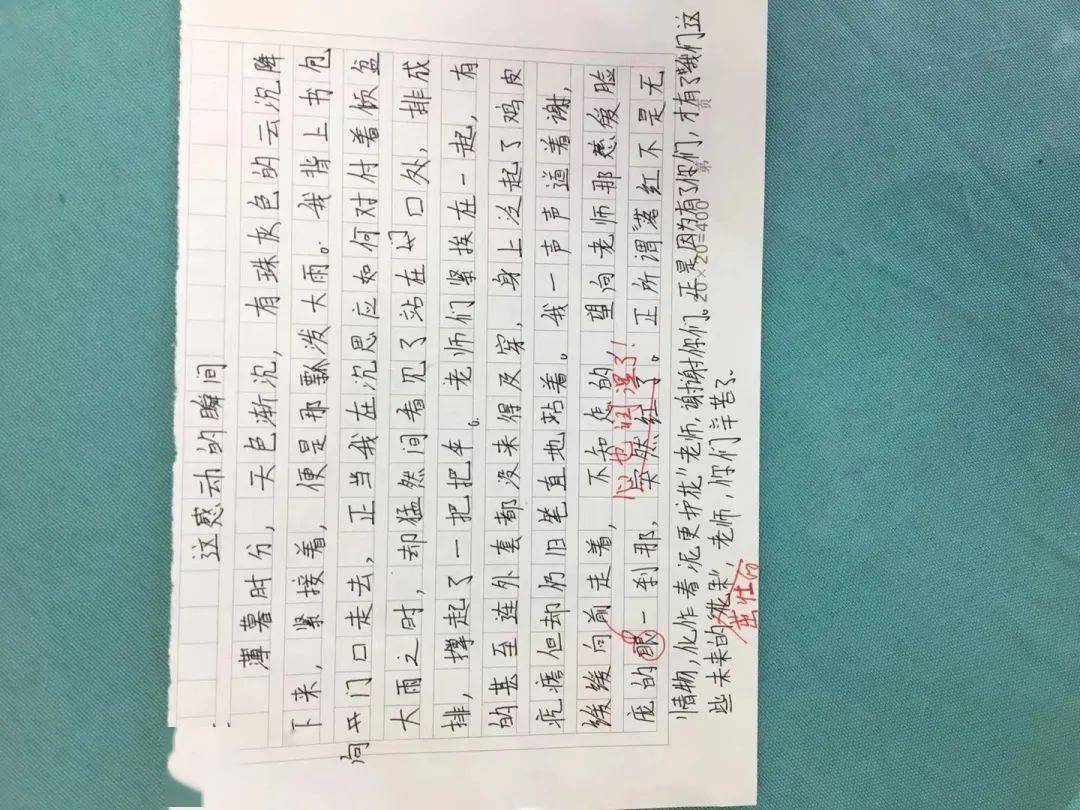 这感动的瞬间
薄暮时分，天色渐沉，有珠灰色的云沉降
下来，紧接着，便是那飘泼大雨。我背上书包
向开门口走去，正当我在沉思应如何对付着倾盆
大雨之时，却猛然间看见了站在口处，排成
排，撑起了一把把伞。老师们紧挨在一起，有
的甚至连外套都没来得及穿，身上泛起了鸡皮
疙瘩但却仍旧笔直地站着。我一声声道着谢，
缓缓向前走着，不知怎的，望向老师那慈爱脸
庞的眼一刹那，突然红了。正所谓“落红不是无
心也湿了！
情物，化作春泥更护花”老师，谢谢你们。正是因为有了你们，才有了我们这
些未来的花朵，老师，你们辛苦了。
茁壮的
20×20=400
第 页